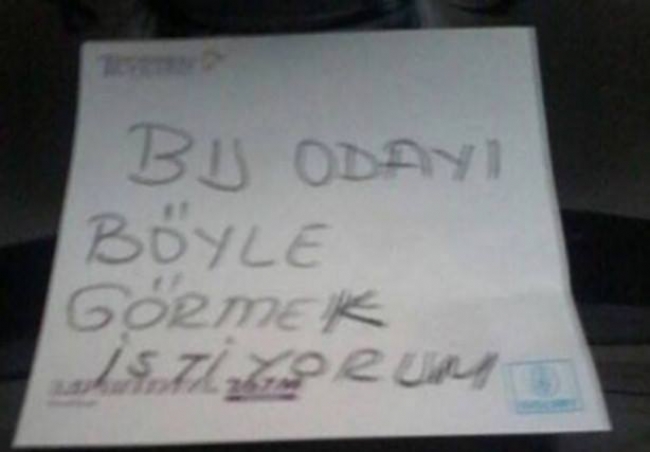 BU ODAYI
BÖYLE
GÖRMEK
İSTİYORUM